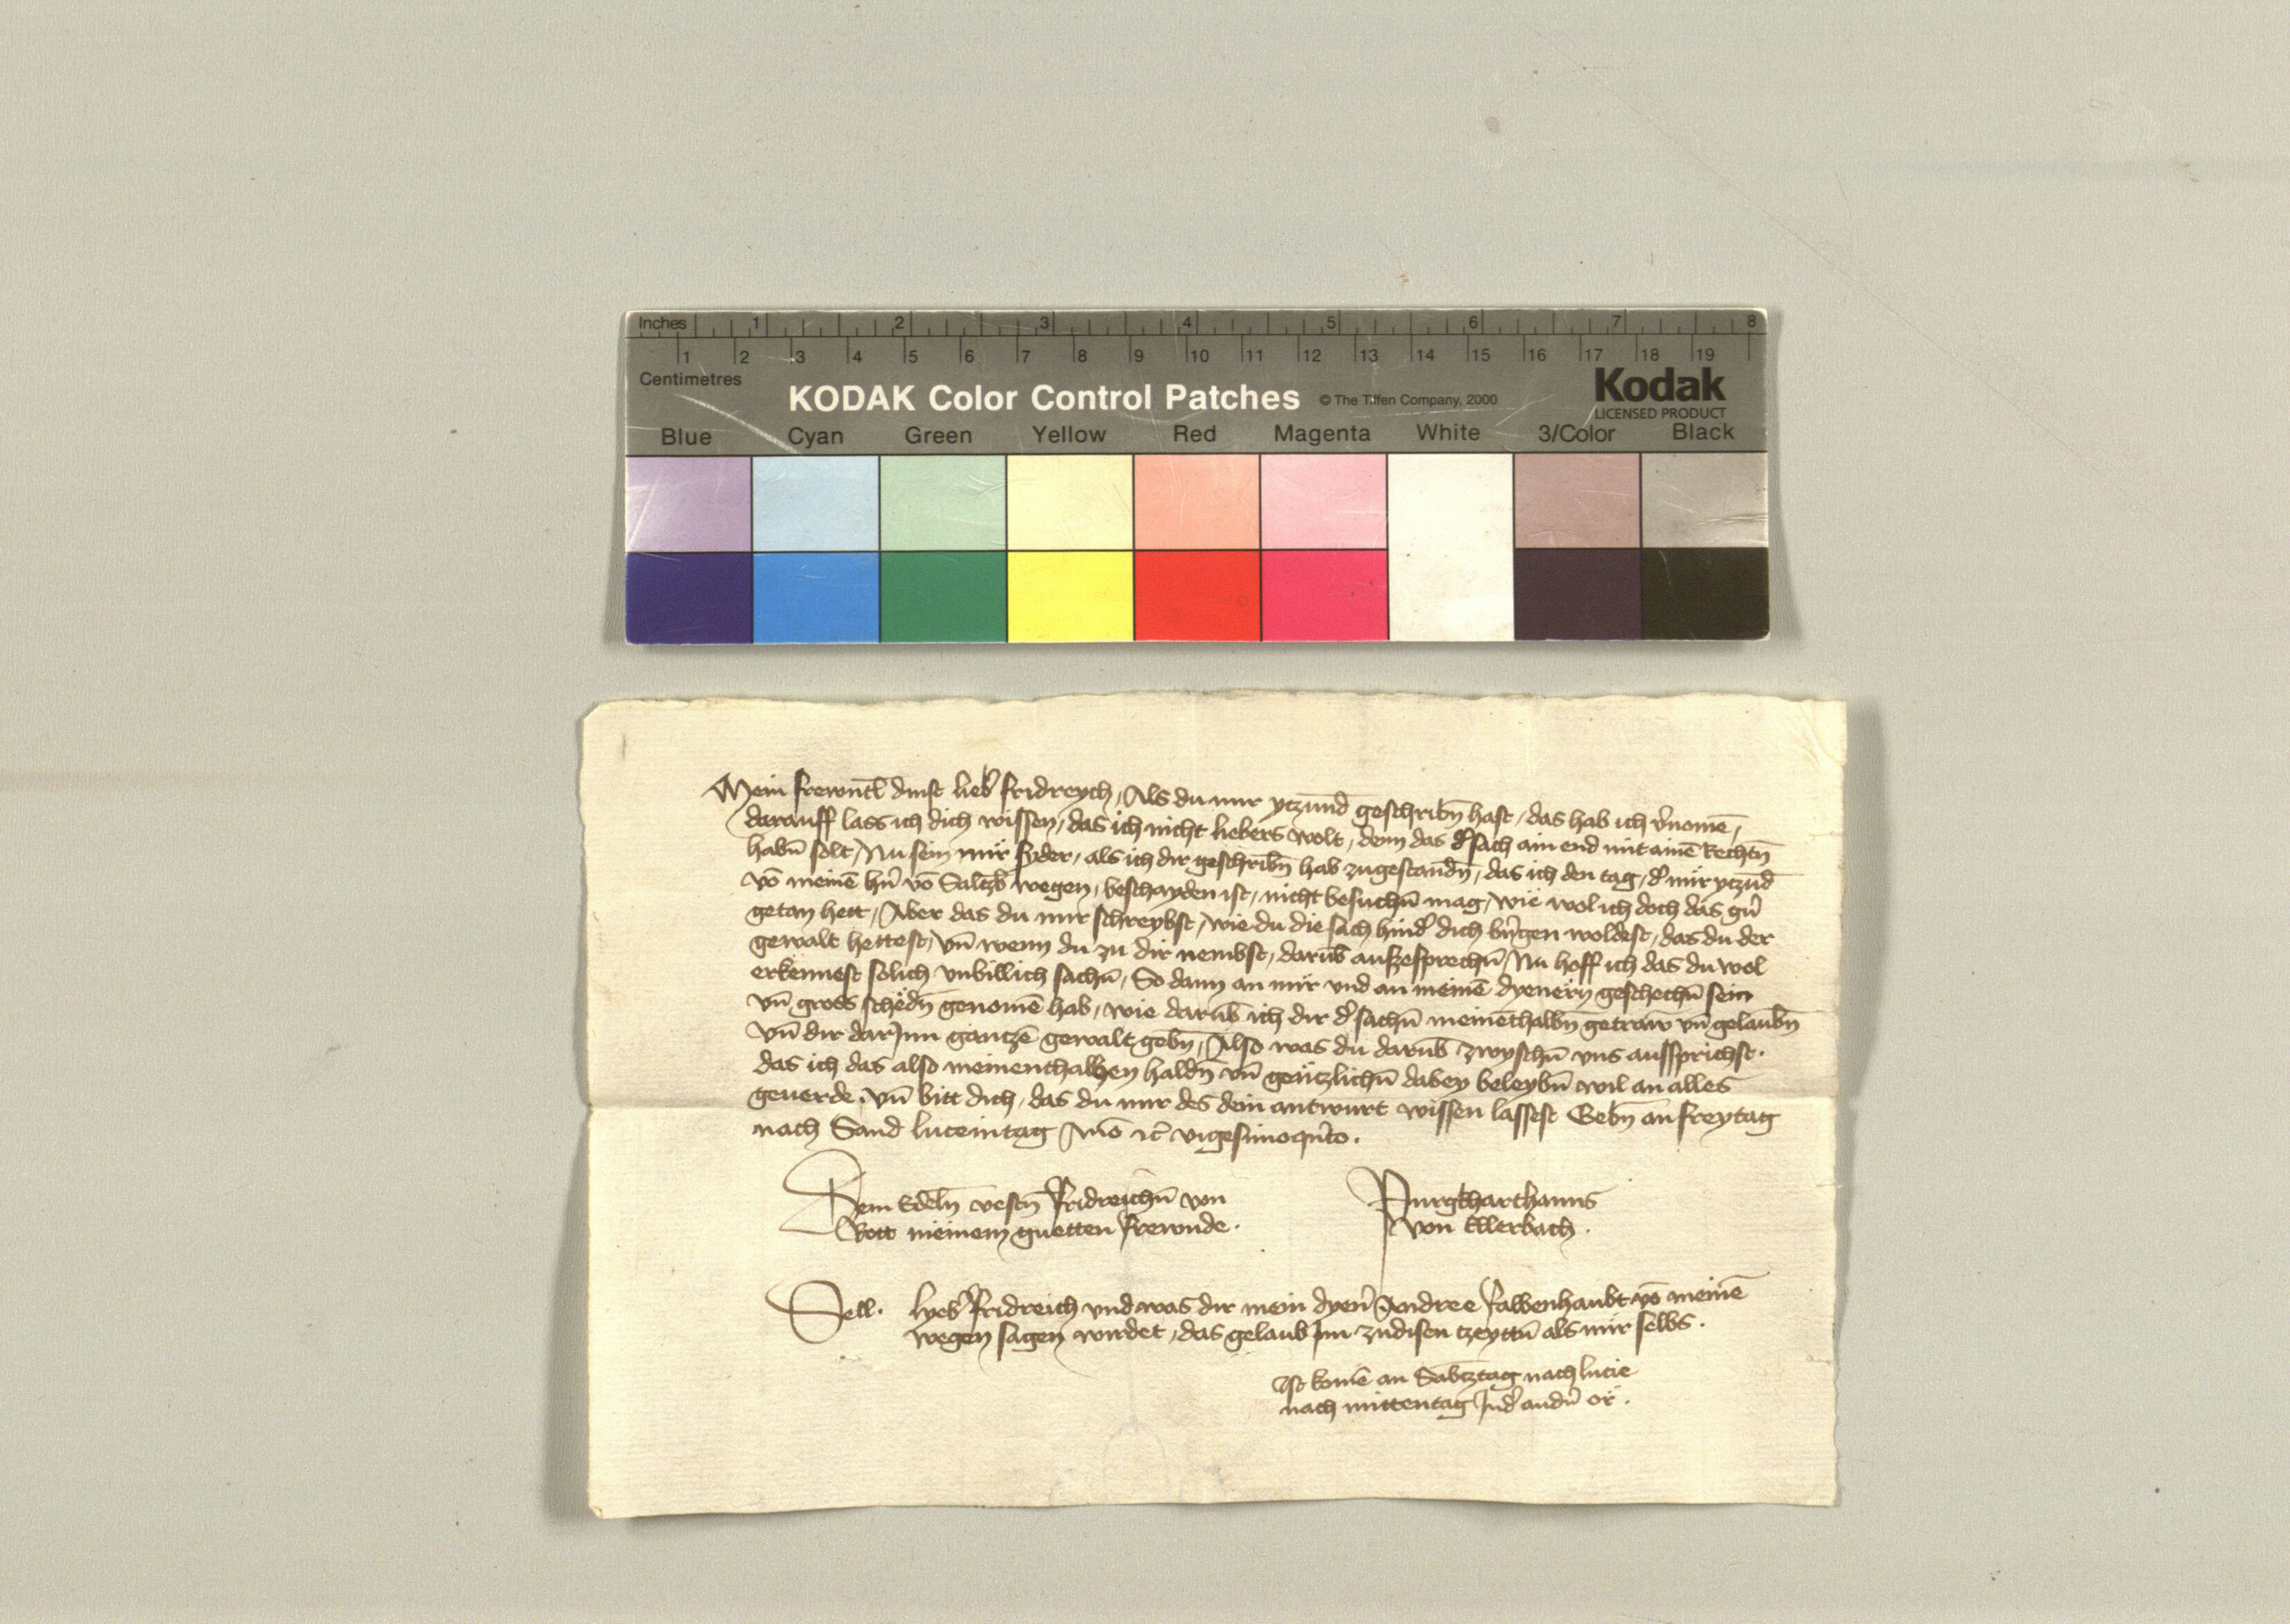 Inches 1 2 3 4 5 6 7 8
1 2 3 4 5 6 7 8 9 10 11 12 13 14 15 16 17 18 19
Centimetres
KODAK Color Control Patches © The Tiffen Company, 2000 Kodak
LICENSED PRODUCT
Blue Cyan Green Yellow Red Magenta White 3/Color Black
Mein frewntl dinst lieb fridreych, Als du mir yczund geschribn̄ hast, das hab ich v̓nomē,
darauff lass ich dich wissen, das ich nicht liebers wolt, denn das d̓ sach ain end mit ainē Rechtn̄
habn̄ solt, Nu sein mir syder, als ich dir geschribn̄ hab zugestandn̄, das ich den tag, d̓ mir yczūd
vō meinē hn̄ vō Salczb̄ wegen, beschayden ist, nicht besuchn̄ mag, wie wol ich doch das gn̄
getan hett, Aber das du mir schreybst, wie du die sach hind̓ dich br̄gen woldest, das du der
gewalt hettest, vn̄ wenn du zu dir nembst, darūb auszesprechn̄, Nu hoff ich das du wol
erkennest solich vnbillich sachn̄, So dann an mir vnd an meinē dyenern geschechn̄ sein
vn̄ gross schedn̄ genomē hab, wie darūb ich dir d̓ sachn̄ meinēthalbn̄ getraw vn̄ gelaubn̄
vn̄ dir darJnn ganczē gewalt gebn̄, Also was du darūb zwyschn̄ vns aussprichst.
das ich das also meinenthalben haldn̄ vn̄ genczlichn̄ dabey beleybn̄ wil an alles
geuerde. vn̄ bitt dich, das du mir des dein antwurt wissen lassest Gebn̄ an freytag
nach Sand luceintag Añō ꝛc̄ vigesimoqn̄to.
Dem Edeln̄ vestn̄ Fridreichn̄ von
Rott meinem guetten Frewnde.
Purgkharthanns
von Ellerbach.
Zell. lyeb̓ Fridreich vnd was dir mein dyen̓ Andree Falbenhaubt vō meinē
wegen sagen wirdet, das gelaub Jm zudisen czeyttn̄ als mir selbs.
Ist komē an Sabcztag nach lucie
nach mittentag Jnd̓ andn̄ or.